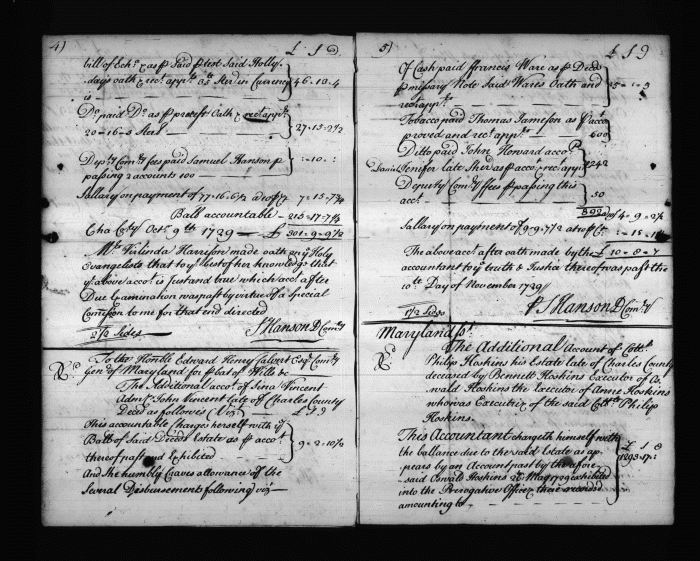 4)
£ S D
bill of Exch. & as p Said protest Said Holly-
days oath & rect appr. 35 Ster. in Currency 46-10-4
is
Do. paid Do. as p protest Oath & rect appr.
20-16-0 Sterl 27-15-2½
Depty Comrs fees paid Samuel Hanson p
passing 2 accounts 100 -:10-:
Sallary on payment of 77-16-6½ 7-15-7¾
Ball accountable 215-17-7½
Cha Cty Octr 9th 1729 £ 301-9-9½
Mrs Virlinda Harrison made oath on ye Holy
Evangelists that to ye best of her knowledge that
ye above acct. is just and true which acct. after
Due Examination was past by virtue of a special
Comission to me for that end directed
2½ Sides SHanson D Comry
To the Honble Edward Henry Calvert Esqr Comry
Genl of Maryland for pbat of Wills &c
The Additional acct. of Sina Vincent
Admx John Vincent late of Charles County
Decd as follows (Viz) £ S D
This accountable Charges herself with ye
Ball of Said Decds Estate as p acct. 9-2-10½
thereof past and Exhibited
And She humbly Craves allowance of the
Several Disbursements following viz
5)
£ S D
Of Cash paid Francis Ware as p Decds
pmissary Note Said Wares Oath and
rect appr.
Tobacco paid Thomas Jameson as p acct
proved and rect appr. 600
Ditto paid John Howard acct.
Daniel Jenifer late Sher as p acct. rect appr. 242
Deputy Comrs ffees p passing this
acct. 50
892
Sallary on payment of 9-9-7½
The above acct. after oath made by the £ 10-8-7
accountant to ye truth & Justice thereof was past the
10th Day of November 1729
1½ Sides p SHanson D Comry
Maryland ss.
The Additional Account of Coll.
Philip Hoskins his Estate late of Charles County
deceased by Bennett Hoskins Executor of Os-
wald Hoskins the Executor of Anne Hoskins
who was Executrix of the said Coll. Philip
Hoskins.
This Accountant chargeth himself with
the ballance due to the said Estate as ap- £ S D
pears by an Account past by the afore- 1293:17:
said Oswald Hoskins 20 May 1729 exhibited
into the Prerogative Office there recorded
amounting to